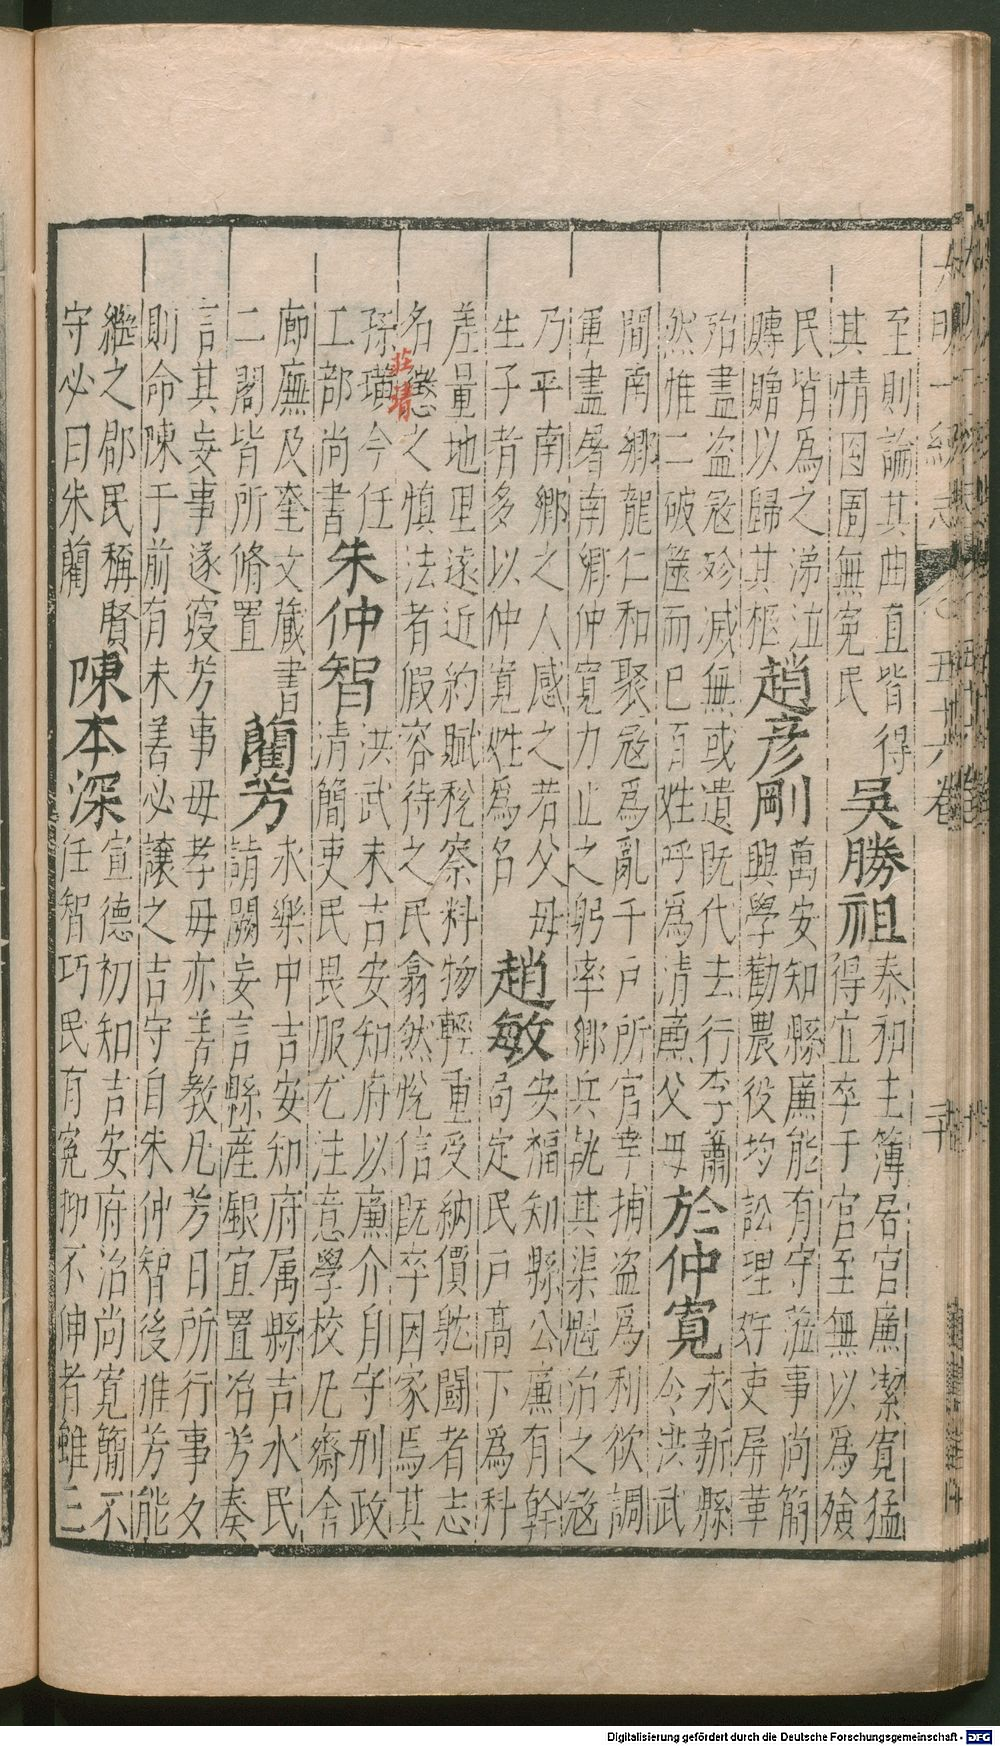 至則論其曲直皆得
其情囹圄無冤民
吳勝祖
泰和主簿居官廉潔寬猛
得宜卒于官至無以為殯
民皆為之涕泣
賻贈以歸其柩
趙彥剛
萬安知縣廉能有守蒞事尚簡
興學勸農役均訟理奸吏屏革
殆盡盜寇殄滅無或遺既代去行李蕭
然惟二破簏而已百姓呼為清廉父母
於仲寬
永新縣
今洪武
間南鄉龍仁和聚寇為亂千戶所官幸捕盜為利欲調
軍盡屠南鄉仲寬力止之躬率鄉兵執其渠魁治之寇
乃平南鄉之人感之若父母
生子者多以仲寬姓為名
趙敏
安福知縣公廉有幹
局定民戶高下為科
差量地里遠近約賦稅察料物輕重受納價訖鬭者志
名懲之慎法者假容待之民翕然悅信既卒因家焉其
孫璜今任
工部尚書
莊靖
朱仲智
洪武末吉安知府以廉介自守刑政
清簡吏民畏服尤注意學校凡齋舍
廊廡及奎文藏書
二閣皆所脩置
藺芳
永樂中吉安知府属縣吉水民
詣闕妄言縣產銀宜置冶芳奏
言其妄事遂寢芳事母孝母亦善教凡芳日所行事夕
則命陳于前有未善必讓之吉守自朱仲智後惟芳能
繼之郡民稱賢
守必曰朱藺
陳本深
宣德初知吉安府治尚寬簡不
任智巧民有冤抑不伸者雖三
五十六卷
Digitalisierung gefördert durch die Deutsche Forschungsgemeinschaft - DFG